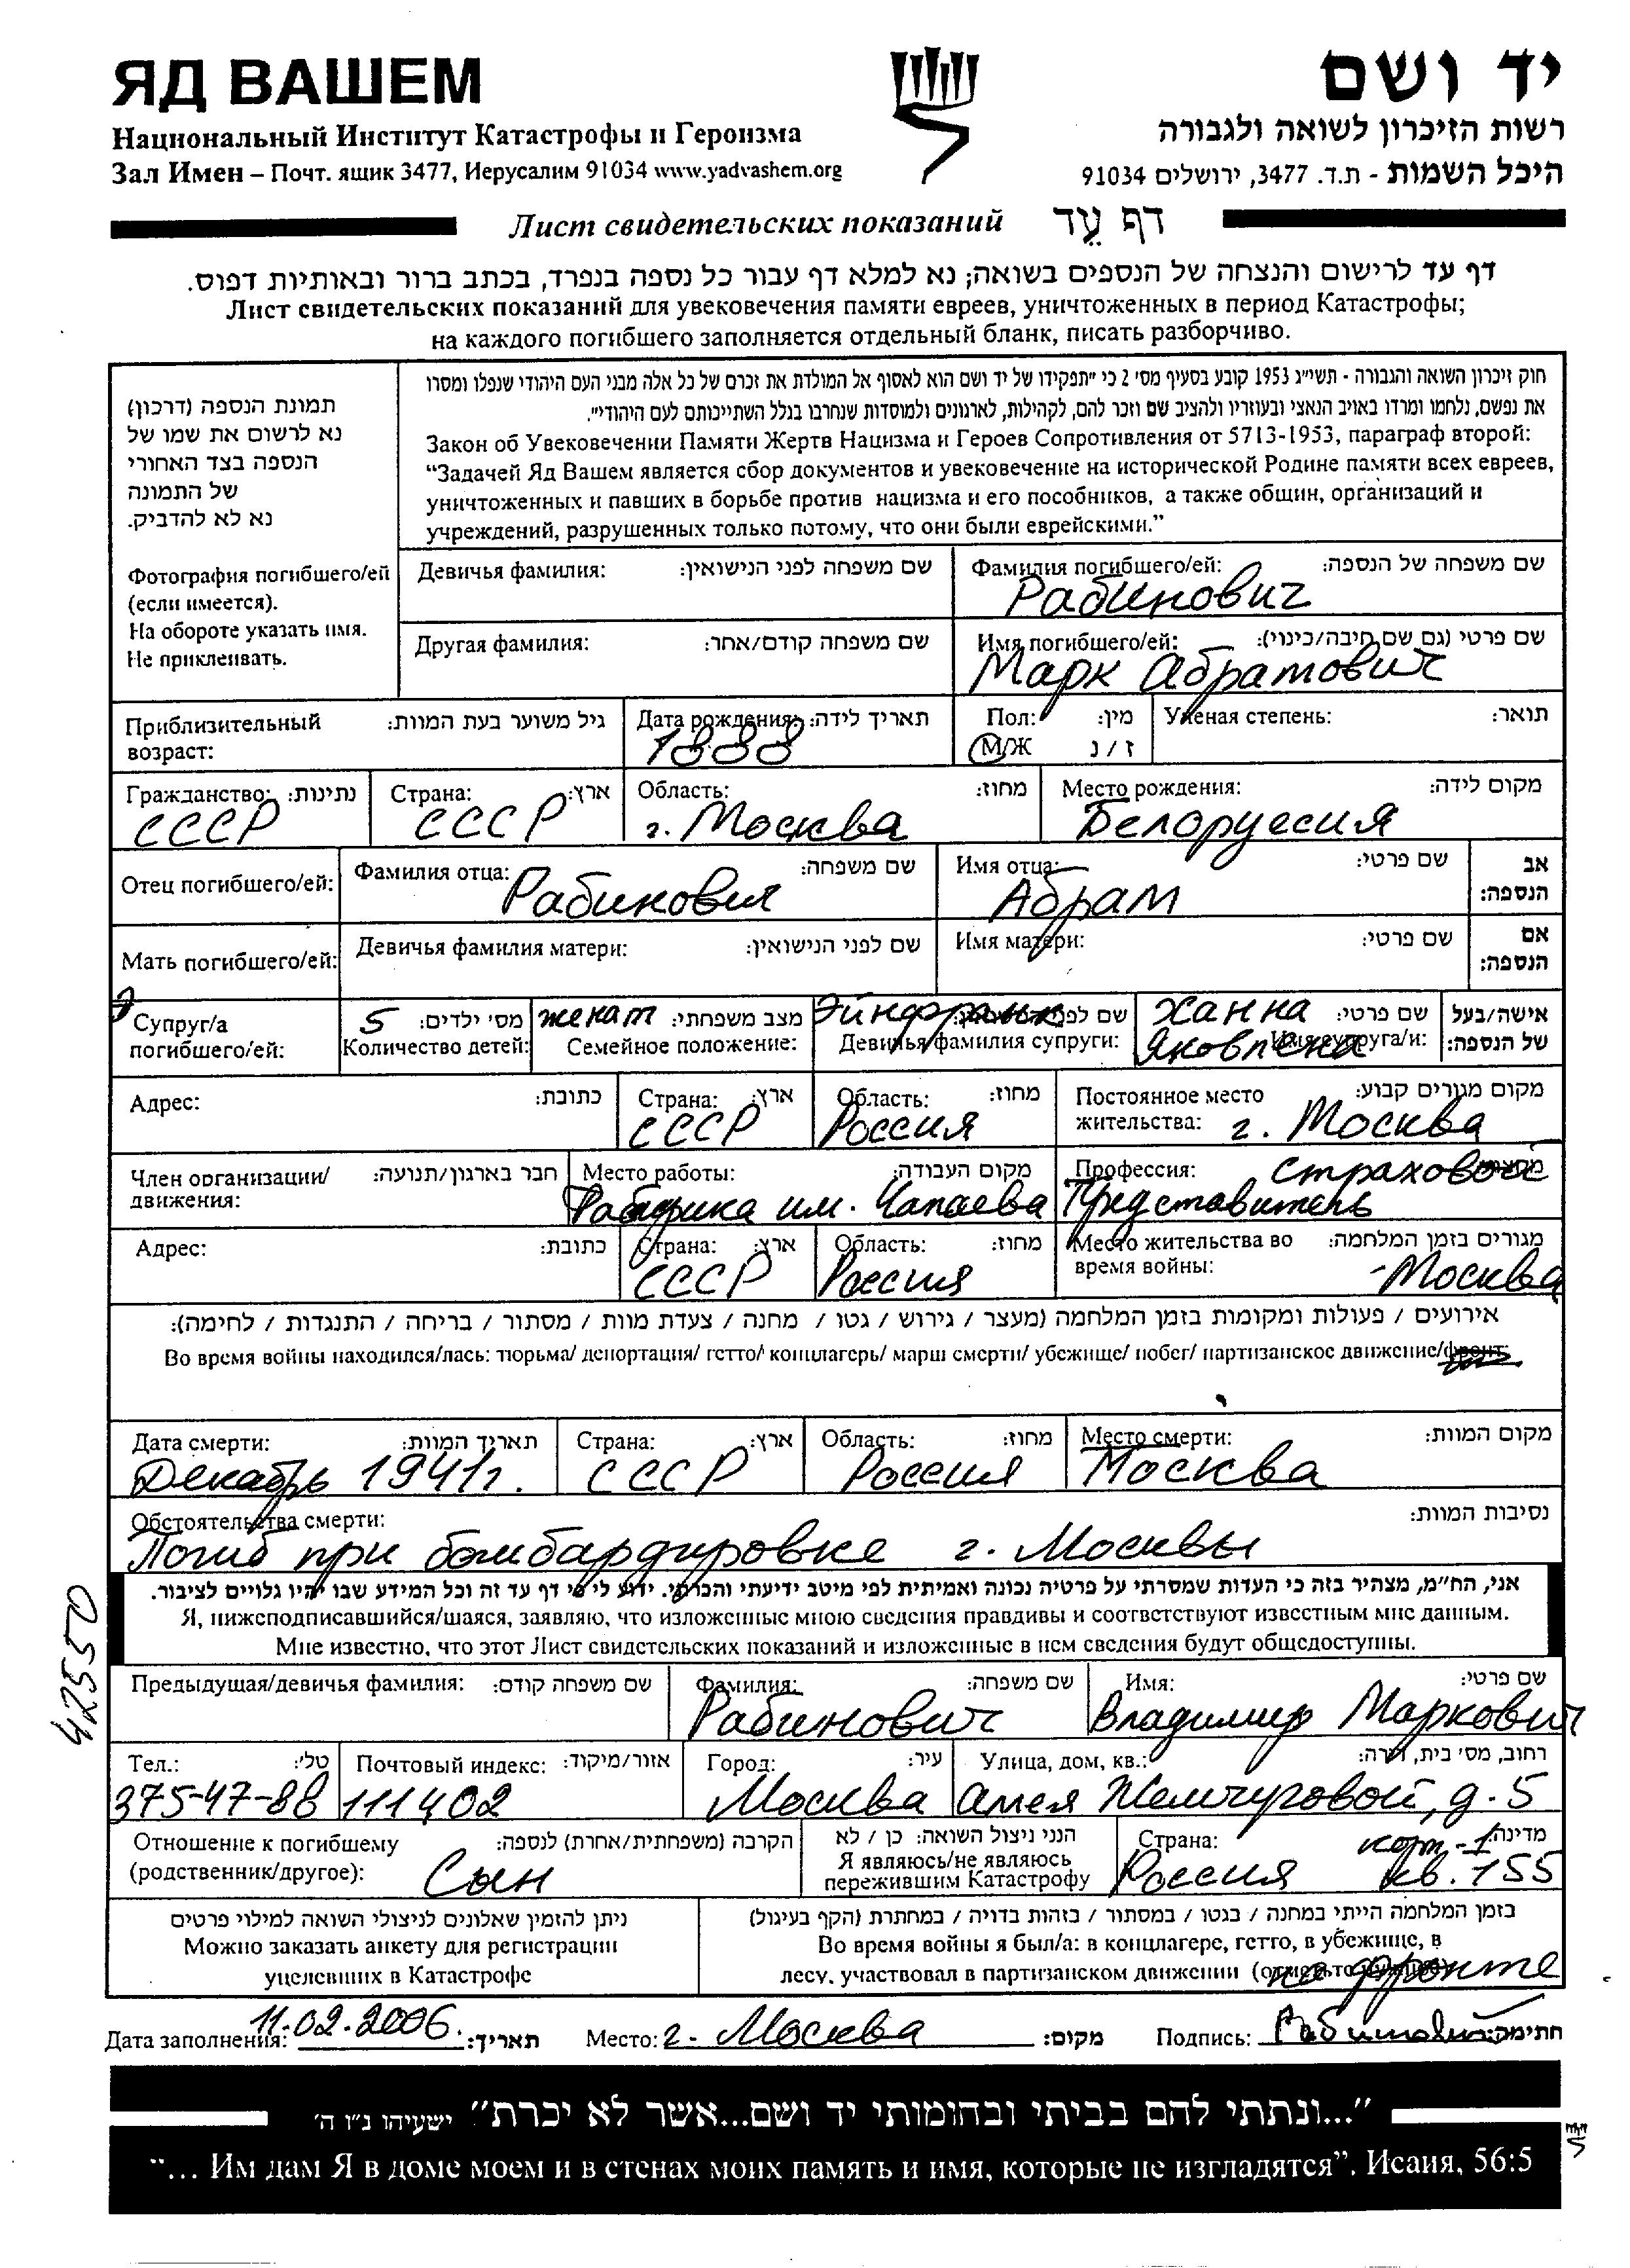 ЯД ВАШЕМ
יד ושם
Национальный Институт Катастрофы и Героизма
רשות הזיכרון לשואה ולגבורה
Зал Имен – Почт. ящик 3477, Иерусалим 91034 www.yadvashem.org
היכל השמות - ת.ד. 3477, ירושלים 91034
Лист свидетельских показаний דף עֵד
דף עד לרישום והנצחה של הנספים בשואה; נא למלא דף עבור כל נספה בנפרד, בכתב ברור ובאותיות דפוס.
Лист свидетельских показаний для увековечения памяти евреев, уничтоженных в период Катастрофы;
на каждого погибшего заполняется отдельный бланк, писать разборчиво.
תמונת הנספה (דרכון)
נא לרשום את שמו של
הנספה בצד האחורי
של התמונה
נא לא להדביק.
Фотография погибшего/ей
(если имеется).
На обороте указать имя.
Не приклеивать.
חוק זיכרון השואה והגבורה - תשי"ג 1953 קובע בסעיף מס' 2 כי "תפקידו של יד ושם הוא לאסוף אל המולדת את זכרם של כל אלה מבני העם היהודי שנפלו ומסרו
את נפשם, נלחמו ומרדו באויב הנאצי ובעוזריו ולהציב שם וזכר להם, לקהילות, לארגונים ולמוסדות שנחרבו בגלל השתייכותם לעם היהודי".
Закон об Увековечении Памяти Жертв Нацизма и Героев Сопротивления от 5713-1953, параграф второй:
“Задачей Яд Вашем является сбор документов и увековечение на исторической Родине памяти всех евреев,
уничтоженных и павших в борьбе против нацизма и его пособников, а также общин, организаций и
учреждений, разрушенных только потому, что они были еврейскими.”
Девичья фамилия: שם משפחה לפני הנישואין:
Фамилия погибшего/ей: שם משפחה של הנספה:
Рабинович
Другая фамилия: שם משפחה קודם/אחר:
Имя погибшего/ей: שם פרטי (גם שם חיבה/כינוי):
Марк Абрамович
Приблизительный возраст: גיל משוער בעת המוות:
Дата рождения: תאריך לידה:
1888
Пол: מין:
М/Ж ז / נ
Ученая степень: תואר:
Гражданство: נתינות:
СССР
Страна: ארץ:
СССР
Область: מחוז:
г. Москва
Место рождения: מקום לידה:
Белоруссия
Отец погибшего/ей:
Фамилия отца: שם משפחה:
Рабинович
Имя отца: שם פרטי:
Абрам
אב הנספה:
Мать погибшего/ей:
Девичья фамилия матери: שם לפני הנישואין:
Имя матери: שם פרטי:
אם הנספה:
Супруг/а погибшего/ей:
5 מס' ילדים:
Количество детей:
женат מצב משפחתי:
Семейное положение:
Эйнфранк שם לפני
Девичья фамилия супруги:
Ханна שם פרטי:
Яковлевна Имя супруга/и:
אישה/בעל של הנספה:
Адрес: כתובת:
Страна: ארץ:
СССР
Область: מחוז:
Россия
Постоянное место жительства: מקום מגורים קבוע:
г. Москва
Член организации/движения: חבר בארגון/תנועה:
Место работы: מקום העבודה:
Фабрика им. Чапаева
Профессия: Страховой
Представитель
Адрес: כתובת:
Страна: ארץ:
СССР
Область: מחוז:
Россия
Место жительства во время войны: מגורים בזמן המלחמה:
-Москва
אירועים / פעולות ומקומות בזמן המלחמה (מעצר / גירוש / גטו / מחנה / צעדת מוות / מסתור / בריחה / התנגדות / לחימה):
Во время войны находился/лась: тюрьма/ депортация/ гетто/ концлагерь/ марш смерти/ убежище/ побег/ партизанское движение/фронт:
Дата смерти: תאריך המוות:
Декабрь 1941г.
Страна: ארץ:
СССР
Область: מחוז:
Россия
Место смерти: מקום המוות:
Москва
Обстоятельства смерти: נסיבות המוות:
Погиб при бомбардировке г. Москвы
אני, הח"מ, מצהיר בזה כי העדות שמסרתי על פרטיה נכונה ואמיתית לפי מיטב ידיעתי והכרתי. ידוע לי כי דף עד זה וכל המידע שבו יהיו גלויים לציבור.
Я, нижеподписавшийся/шаяся, заявляю, что изложенные мною сведения правдивы и соответствуют известным мне данным.
Мне известно, что этот Лист свидетельских показаний и изложенные в нем сведения будут общедоступны.
42550
Предыдущая/девичья фамилия: שם משפחה קודם:
Фамилия: שם משפחה:
Рабинович
Имя: שם פרטי:
Владимир Маркович
Тел.: טל':
375-47-88
Почтовый индекс: אזור/מיקוד:
111402
Город: עיר:
Москва
Улица, дом, кв.: רחוב, מס' בית, דירה:
Аллея Жемчуговой, д. 5
Отношение к погибшему (родственник/другое): הקרבה (משפחתית/אחרת) לנספה:
Сын
הנני ניצול השואה: כן / לא
Я являюсь/не являюсь
пережившим Катастрофу
Страна: מדינה:
корп.-1
Россия кв. 155
ניתן להזמין שאלונים לניצולי השואה למילוי פרטים
Можно заказать анкету для регистрации
уцелевших в Катастрофе
בזמן המלחמה הייתי במחנה / בגטו / במסתור / בזהות בדויה / במחתרת (הקף בעיגול)
Во время войны я был/а: в концлагере, гетто, в убежище, в
лесу, участвовал в партизанском движении на фронте
Дата заполнения: 11.02.2006. תאריך: Место: г. Москва מקום: Подпись: Рабинович חתימה:
"...ונתתי להם בביתי ובחומותי יד ושם...אשר לא יכרת" ישעיהו נ"ו ה'
“... Им дам Я в доме моем и в стенах моих память и имя, которые не изгладятся”. Исаия, 56:5